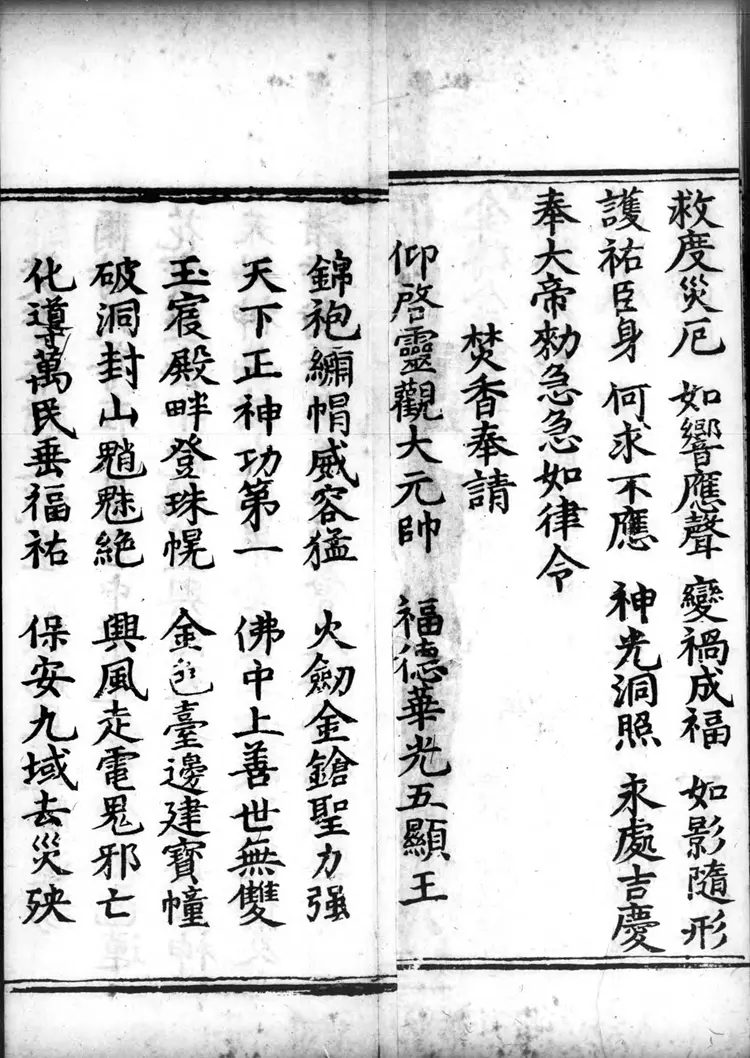 救度災厄 如響應聲 變禍成福 如影隨形
護祐臣身 何求不應 神光洞照 永處吉慶
奉大帝勑急急如律令
焚香奉請
仰啓靈觀大元帥 福德華光五顯王
錦袍繡帽威容猛 火劒金鎗聖力强
天下正神功第一 佛中上善世無雙
玉宸殿畔登珠幌 金色臺邊建寶幢
破洞封山魈魅絶 興風走電鬼邪亡
化導萬民垂福祐 保安九域去災殃